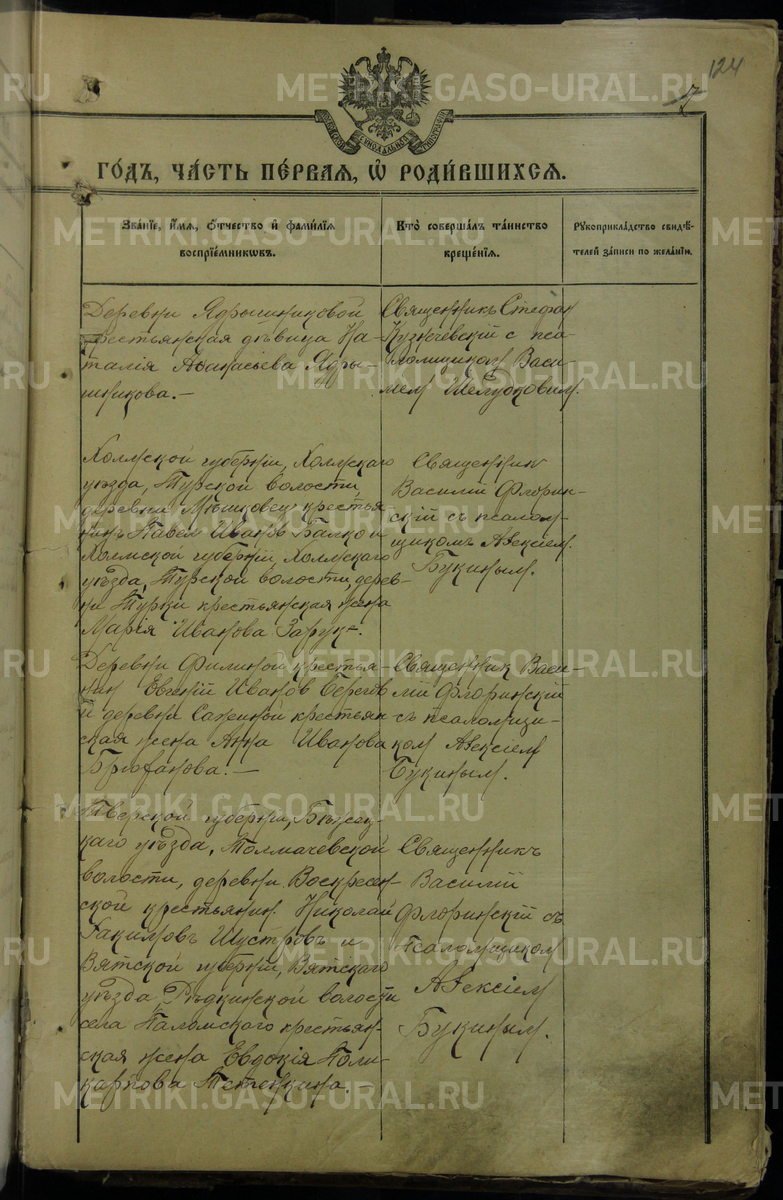 124
17
ГО́ДЪ, ЧА́СТЬ ПЕ́РВАѦ, Ѡ҆ РОДИ́ВШИХСѦ.
Зва́нїе, и҆́мѧ, ѻ҆́тчество и҆ фами́лїѧ
воспрїе́мниковъ.
Кто̀ соверша́лъ та́инство
креще́нїѧ.
Рꙋкоприкла́дство свидѣ́-
телей за́писи по жела́нїю.
Деревни Ядрышниковой
крестьянская дѣвица На-
талія Аѳанасьева Ядры-
шникова.—
Священникъ Стефан
Кузнечевскій с пса-
ломщиком Васи-
лием Шелудковым.
Холмской губерніи, Холмскаго
уѣзда, Турской волости,
деревни Мѣшковец крестья
нинъ Павел Иванов Балко и
Холмской губерніи, Холмскаго
уѣзда, Турской волости, дерев-
ни Турки крестьянская жена
Марія Иванова Зарук.
Священник
Василій Флорин-
скій съ псалом-
щикомъ Алексіем
Букиным.
Деревни Филиной крестья-
нин Евгеній Иванов Берегов
и деревни крестьян
ская жена Анна Иванова
Брюханова.—
Священник Васи-
лій Флоринскій
съ псаломщи-
ком Алексіем
Букиным.
Тверской губерніи, Бѣжец-
каго уѣзда, Толмачевской
волости, деревни Воскресен-
ской крестьянин Николай
Іакимовъ Шустровъ и
Вятской губерніи, Вятскаго
уѣзда, Рѣдкинской волости
села Паломскаго крестьян-
ская жена Евдокія Поли-
карпова Тетенкина.—
Священникъ
Василій
Флоринскій съ
Псаломщиком
Алексіем
Букиным.
METRIKI.GASO-URAL.RU